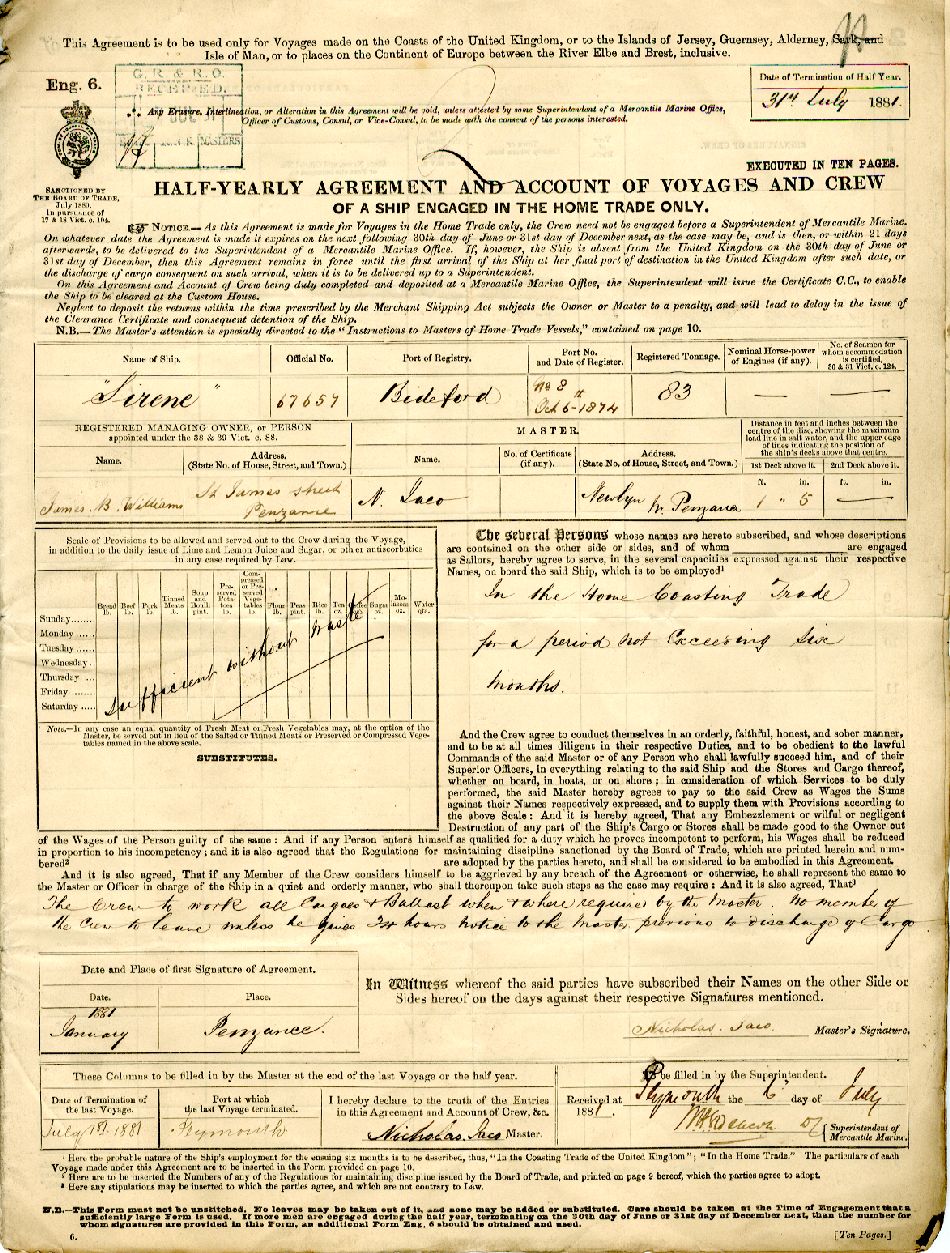 This Agreement is to be used only for Voyages made on the Coasts of the United Kingdom, or to the Islands of Jersey, Guernsey, Alderney, Sark, and
Isle of Man, or to places on the Continent of Europe between the River Elbe and Brest, inclusive.
Eng. 6.
G. R. & R. O.
RECEIVED.
MASTERS
Any Erasure, Interlineation, or Alteration in this Agreement will be void, unless attested by some Superintendent of a Mercantile Marine Office,
Officer of Customs, Consul, or Vice-Consul, to be made with the consent of the persons interested.
Date of Termination of Half Year.
31st July 1881.
SANCTIONED BY
THE BOARD OF TRADE,
July 1880.
In pursuance of
17 & 18 Vict. c. 104.
EXECUTED IN TEN PAGES.
HALF-YEARLY AGREEMENT AND ACCOUNT OF VOYAGES AND CREW
OF A SHIP ENGAGED IN THE HOME TRADE ONLY.
NOTICE.—As this Agreement is made for Voyages in the Home Trade only, the Crew need not be engaged before a Superintendent of Mercantile Marine.
On whatever date the Agreement is made it expires on the next following 30th day of June or 31st day of December next, as the case may be, and is then, or within 21 days
afterwards, to be delivered to the Superintendent of a Mercantile Marine Office. If, however, the Ship is absent from the United Kingdom on the 30th day of June or
31st day of December, then this Agreement remains in force until the first arrival of the Ship at her final port of destination in the United Kingdom after such date, or
the discharge of cargo consequent on such arrival, when it is to be delivered up to a Superintendent.
On this Agreement and Account of Crew being duly completed and deposited at a Mercantile Marine Office, the Superintendent will issue the Certificate C.C., to enable
the Ship to be cleared at the Custom House.
Neglect to deposit the returns within the time prescribed by the Merchant Shipping Act subjects the Owner or Master to a penalty, and will lead to delay in the issue of
the Clearance Certificate and consequent detention of the Ship.
N.B.—The Master's attention is specially directed to the "Instructions to Masters of Home Trade Vessels," contained on page 10.
Name of Ship.
Official No.
Port of Registry.
Port No.
and Date of Register.
Registered Tonnage.
Nominal Horse-power
of Engines (if any).
No. of Seamen for
whom accommodation
is certified,
30 & 31 Vict. c. 124.
"Sirene"
67657
Bideford
No 8
Oct 6th 1874
83
—
—
REGISTERED MANAGING OWNER, or PERSON
appointed under the 38 & 39 Vict. c. 88.
MASTER.
Distance in feet and inches between the
centre of the disc, showing the maximum
load line in salt water, and the upper edge
of lines indicating the position of
the ship's decks above that centre.
Name.
Address.
(State No. of House, Street, and Town.)
Name.
No. of Certificate
(if any).
Address.
(State No. of House, Street, and Town.)
1st Deck above it.
2nd Deck above it.
ft. in.
ft. in.
James B. Williams
St James street
Penzance
N. Jaco
Newlyn
Nr. Penzance
1 " 5
—
Scale of Provisions to be allowed and served out to the Crew during the Voyage,
in addition to the daily issue of Lime and Lemon Juice and Sugar, or other antiscorbutics
in any case required by Law.
Bread lb.
Beef lb.
Pork lb.
Flour lb.
Peas pint.
Rice lb.
Sugar oz.
Water qts.
Sunday
Monday
Tuesday
Wednesday
Thursday
Friday
Saturday
Sufficient without waste
Note.—In any case an equal quantity of Fresh Meat or Fresh Vegetables may, at the option of the
Master, be served out in lieu of the Salted or Tinned Meats or Preserved or Compressed Vege-
tables named in the above scale.
SUBSTITUTES.
The Several Persons whose names are hereto subscribed, and whose descriptions
are contained on the other side or sides, and of whom are engaged
as Sailors, hereby agree to serve, in the several capacities expressed against their respective
Names, on board the said Ship, which is to be employed¹
In the Home Coasting Trade
for a period not Exceeding Six
Months.
And the Crew agree to conduct themselves in an orderly, faithful, honest, and sober manner,
and to be at all times diligent in their respective Duties, and to be obedient to the lawful
Commands of the said Master or of any Person who shall lawfully succeed him, and of their
Superior Officers, in everything relating to the said Ship and the Stores and Cargo thereof,
whether on board, in boats, or on shore; in consideration of which Services to be duly
performed, the said Master hereby agrees to pay to the said Crew as Wages the Sums
against their Names respectively expressed, and to supply them with Provisions according to
the above Scale: And it is hereby agreed, That any Embezzlement or wilful or negligent
Destruction of any part of the Ship's Cargo or Stores shall be made good to the Owner out
of the Wages of the Person guilty of the same: And if any Person enters himself as qualified for a duty which he proves incompetent to perform, his Wages shall be reduced
in proportion to his incompetency; and it is also agreed that the Regulations for maintaining discipline sanctioned by the Board of Trade, which are printed herein and num-
bered² are adopted by the parties hereto, and shall be considered to be embodied in this Agreement.
And it is also agreed, That if any Member of the Crew considers himself to be aggrieved by any breach of the Agreement or otherwise, he shall represent the same to
the Master or Officer in charge of the Ship in a quiet and orderly manner, who shall thereupon take such steps as the case may require: And it is also agreed, That³
The Crew to work all Cargoes & Ballast when & where required by the Master. No member of
the Crew to leave unless he gives 24 hours notice to the Master previous to discharge of Cargo
Date and Place of first Signature of Agreement.
Date.
Place.
1881
January
Penzance.
In Witness whereof the said parties have subscribed their Names on the other Side or
Sides hereof on the days against their respective Signatures mentioned.
Nicholas. Jaco. Master's Signature.
These Columns to be filled in by the Master at the end of the last Voyage or the half year.
Date of Termination of
the last Voyage.
Port at which
the last Voyage terminated.
I hereby declare to the truth of the Entries
in this Agreement and Account of Crew, &c.
July 1st 1881
Plymouth
Nicholas. Jaco Master.
To be filled in by the Superintendent.
Received at Plymouth the 6 day of July
1881
Superintendent of
Mercantile Marine.
¹ Here the probable nature of the Ship's employment for the ensuing six months is to be described, thus, "In the Coasting Trade of the United Kingdom"; "In the Home Trade." The particulars of each
Voyage made under this Agreement are to be inserted in the Form provided on page 10.
² Here are to be inserted the Numbers of any of the Regulations for maintaining discipline issued by the Board of Trade, and printed on page 9 hereof, which the parties agree to adopt.
³ Here any stipulations may be inserted to which the parties agree, and which are not contrary to Law.
N.B.—This Form must not be unstitched. No leaves may be taken out of it, and none may be added or substituted. Care should be taken at the Time of Engagement that a
sufficiently large Form is used. If more men are engaged during the half year, terminating on the 30th day of June or 31st day of December next, than the number for
whom signatures are provided in this Form, an additional Form Eng. 6 should be obtained and used.
6.
[Ten Pages.]